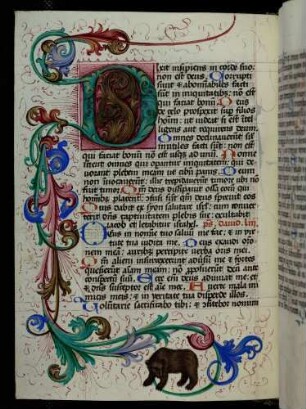 Dixit insipiens in corde suo:
non est deus. Corrupti
sunt et abominabiles facti
sunt in iniquitatibus: nō est
qui faciat bonū. Deus
de celo prospexit sup filios
hoīm: ut videat si est intel
ligens aut requirens deum.
Omnes declinaverūt si
inutiles facti sūt: non est
qui faciat bonū nō est usqȝ ad unum. Nonne
scient omnes qui operant iniquitatem: qui de
vorant plebem meam ut cibū panis. Deum
non invocaverūt: illic trepidaverūt timore ubi nō
fuit timor. Qm deus dissipavit ossa eorū qui
hominibȝ placent: confusi sūt qm deus sprevit eos
Quis dabit ex syon salutare isrl: cum conver
terit dns captivitatem plebis sue: exultabit
iacob et letabitur israhel. ps david. liii
Deus in nomine tuo salvū me fac: et in vir
tute tua iudica me. Deus exaudi oro
nem meā: auribȝ percipe verba oris mei.
Qm alieni insurrexerūt adversū me et fortes
quesierūt aīam meam: nō proposuerūt deū ante
conspectū suū. Ecce em deus adiuvat me: et
dns susceptor est aīe mee. Averte mala ini
micis meis: et in veritate tua disperde illos.
Voluntarie sacrificabo tibi: et cōfitebor nomini